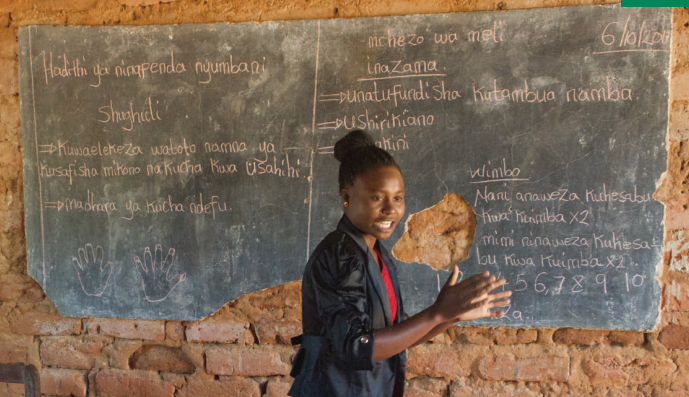 Hadithi ya ninapenda nyumbani
Shughuli
⇒ Kuwaelekeza watoto namna ya
Kusafisha mikono na kucha kwa usahihi.
⇒ madhara ya kucha ndefu.
mchezo wa meli
inazama.
⇒ unatufundisha kutambua namba.
⇒ Ushirikiano
6/10/20
Wimbo
Nani anaweza kuhesabu
kwa kuimba x2
mimi ninaweza kuhesa-
bu kwa kuimba x2.
5 6 7 8 9 10